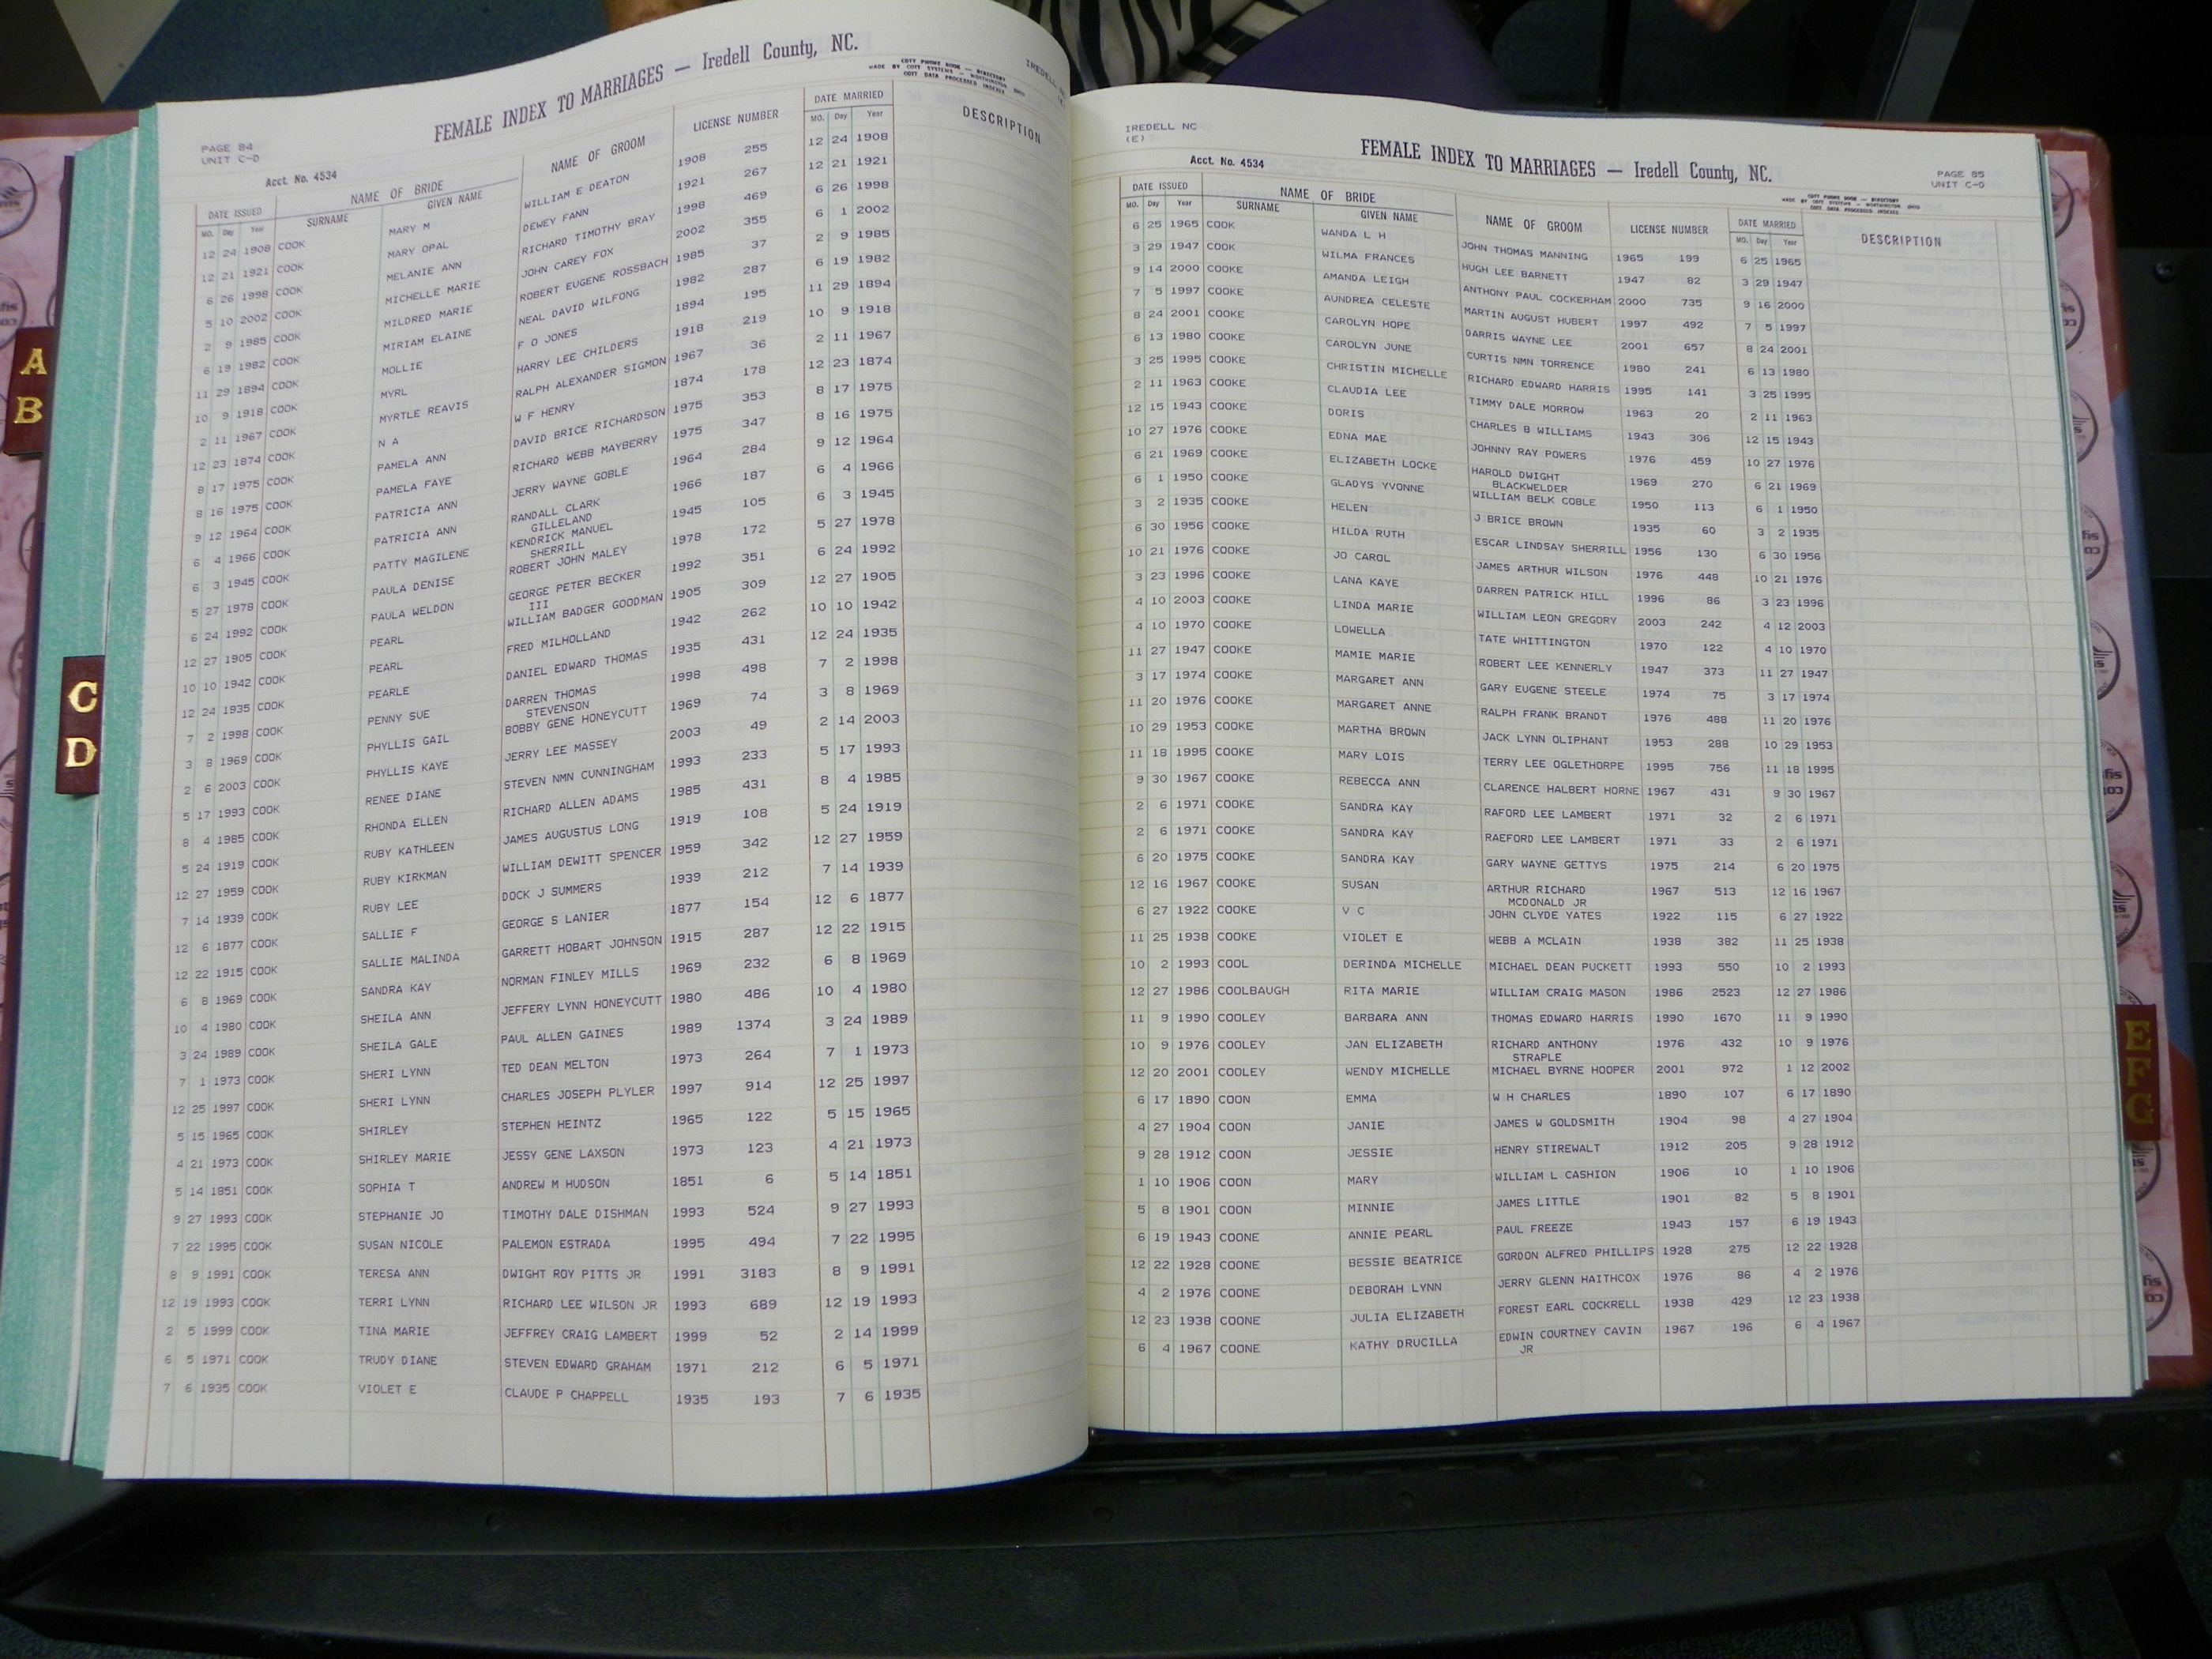 FEMALE INDEX TO MARRIAGES — Iredell County, NC.
COTT PHONE BOOK — DIRECTORY
MADE BY COTT SYSTEMS — WORTHINGTON OHIO
COTT DATA PROCESSED INDEXES
PAGE 84
UNIT C-D
Acct. No. 4534
DATE ISSUED NAME OF BRIDE NAME OF GROOM LICENSE NUMBER DATE MARRIED DESCRIPTION
MO. Day Year SURNAME GIVEN NAME MO. Day Year
12 24 1908 COOK MARY M WILLIAM E DEATON 1908 255 12 24 1908
12 21 1921 COOK MARY OPAL DEWEY FANN 1921 267 12 21 1921
6 26 1998 COOK MELANIE ANN RICHARD TIMOTHY BRAY 1998 469 6 26 1998
5 10 2002 COOK MICHELLE MARIE JOHN CAREY FOX 2002 355 6 1 2002
2 9 1985 COOK MILDRED MARIE ROBERT EUGENE ROSSBACH 1985 37 2 9 1985
6 19 1982 COOK MIRIAM ELAINE NEAL DAVID WILFONG 1982 287 6 19 1982
11 29 1894 COOK MOLLIE F O JONES 1894 195 11 29 1894
10 9 1918 COOK MYRL HARRY LEE CHILDERS 1918 219 10 9 1918
2 11 1967 COOK MYRTLE REAVIS RALPH ALEXANDER SIGMON 1967 36 2 11 1967
12 23 1874 COOK N A W F HENRY 1874 178 12 23 1874
8 17 1975 COOK PAMELA ANN DAVID BRICE RICHARDSON 1975 353 8 17 1975
8 16 1975 COOK PAMELA FAYE RICHARD WEBB MAYBERRY 1975 347 8 16 1975
9 12 1964 COOK PATRICIA ANN JERRY WAYNE GOBLE 1964 284 9 12 1964
6 4 1966 COOK PATRICIA ANN RANDALL CLARK 1966 187 6 4 1966
GILLELAND
6 3 1945 COOK PATTY MAGILENE KENDRICK MANUEL 1945 105 6 3 1945
SHERRILL
5 27 1978 COOK PAULA DENISE ROBERT JOHN MALEY 1978 172 5 27 1978
6 24 1992 COOK PAULA WELDON GEORGE PETER BECKER 1992 351 6 24 1992
III
12 27 1905 COOK PEARL WILLIAM BADGER GOODMAN 1905 309 12 27 1905
10 10 1942 COOK PEARL FRED MILHOLLAND 1942 262 10 10 1942
12 24 1935 COOK PEARLE DANIEL EDWARD THOMAS 1935 431 12 24 1935
7 2 1998 COOK PENNY SUE DARREN THOMAS 1998 498 7 2 1998
STEVENSON
3 8 1969 COOK PHYLLIS GAIL BOBBY GENE HONEYCUTT 1969 74 3 8 1969
2 6 2003 COOK PHYLLIS KAYE JERRY LEE MASSEY 2003 49 2 14 2003
5 17 1993 COOK RENEE DIANE STEVEN NMN CUNNINGHAM 1993 233 5 17 1993
8 4 1985 COOK RHONDA ELLEN RICHARD ALLEN ADAMS 1985 431 8 4 1985
5 24 1919 COOK RUBY KATHLEEN JAMES AUGUSTUS LONG 1919 108 5 24 1919
12 27 1959 COOK RUBY KIRKMAN WILLIAM DEWITT SPENCER 1959 342 12 27 1959
7 14 1939 COOK RUBY LEE DOCK J SUMMERS 1939 212 7 14 1939
12 6 1877 COOK SALLIE F GEORGE S LANIER 1877 154 12 6 1877
12 22 1915 COOK SALLIE MALINDA GARRETT HOBART JOHNSON 1915 287 12 22 1915
6 8 1969 COOK SANDRA KAY NORMAN FINLEY MILLS 1969 232 6 8 1969
10 4 1980 COOK SHEILA ANN JEFFERY LYNN HONEYCUTT 1980 486 10 4 1980
3 24 1989 COOK SHEILA GALE PAUL ALLEN GAINES 1989 1374 3 24 1989
7 1 1973 COOK SHERI LYNN TED DEAN MELTON 1973 264 7 1 1973
12 25 1997 COOK SHERI LYNN CHARLES JOSEPH PLYLER 1997 914 12 25 1997
5 15 1965 COOK SHIRLEY STEPHEN HEINTZ 1965 122 5 15 1965
4 21 1973 COOK SHIRLEY MARIE JESSY GENE LAXSON 1973 123 4 21 1973
5 14 1851 COOK SOPHIA T ANDREW M HUDSON 1851 6 5 14 1851
9 27 1993 COOK STEPHANIE JO TIMOTHY DALE DISHMAN 1993 524 9 27 1993
7 22 1995 COOK SUSAN NICOLE PALEMON ESTRADA 1995 494 7 22 1995
8 9 1991 COOK TERESA ANN DWIGHT ROY PITTS JR 1991 3183 8 9 1991
12 19 1993 COOK TERRI LYNN RICHARD LEE WILSON JR 1993 689 12 19 1993
2 5 1999 COOK TINA MARIE JEFFREY CRAIG LAMBERT 1999 52 2 14 1999
6 5 1971 COOK TRUDY DIANE STEVEN EDWARD GRAHAM 1971 212 6 5 1971
7 6 1935 COOK VIOLET E CLAUDE P CHAPPELL 1935 193 7 6 1935
IREDELL NC
(E)
FEMALE INDEX TO MARRIAGES — Iredell County, NC.
Acct. No. 4534
PAGE 85
UNIT C-D
COTT PHONE BOOK — DIRECTORY
MADE BY COTT SYSTEMS — WORTHINGTON OHIO
COTT DATA PROCESSED INDEXES
DATE ISSUED NAME OF BRIDE NAME OF GROOM LICENSE NUMBER DATE MARRIED DESCRIPTION
MO. Day Year SURNAME GIVEN NAME MO. Day Year
6 25 1965 COOK WANDA L H JOHN THOMAS MANNING 1965 199 6 25 1965
3 29 1947 COOK WILMA FRANCES HUGH LEE BARNETT 1947 82 3 29 1947
9 14 2000 COOKE AMANDA LEIGH ANTHONY PAUL COCKERHAM 2000 735 9 16 2000
7 5 1997 COOKE AUNDREA CELESTE MARTIN AUGUST HUBERT 1997 492 7 5 1997
8 24 2001 COOKE CAROLYN HOPE DARRIS WAYNE LEE 2001 657 8 24 2001
6 13 1980 COOKE CAROLYN JUNE CURTIS NMN TORRENCE 1980 241 6 13 1980
3 25 1995 COOKE CHRISTIN MICHELLE RICHARD EDWARD HARRIS 1995 141 3 25 1995
2 11 1963 COOKE CLAUDIA LEE TIMMY DALE MORROW 1963 20 2 11 1963
12 15 1943 COOKE DORIS CHARLES B WILLIAMS 1943 306 12 15 1943
10 27 1976 COOKE EDNA MAE JOHNNY RAY POWERS 1976 459 10 27 1976
6 21 1969 COOKE ELIZABETH LOCKE HAROLD DWIGHT 1969 270 6 21 1969
BLACKWELDER
6 1 1950 COOKE GLADYS YVONNE WILLIAM BELK COBLE 1950 113 6 1 1950
3 2 1935 COOKE HELEN J BRICE BROWN 1935 60 3 2 1935
6 30 1956 COOKE HILDA RUTH ESCAR LINDSAY SHERRILL 1956 130 6 30 1956
10 21 1976 COOKE JO CAROL JAMES ARTHUR WILSON 1976 448 10 21 1976
3 23 1996 COOKE LANA KAYE DARREN PATRICK HILL 1996 86 3 23 1996
4 10 2003 COOKE LINDA MARIE WILLIAM LEON GREGORY 2003 242 4 12 2003
4 10 1970 COOKE LOWELLA TATE WHITTINGTON 1970 122 4 10 1970
11 27 1947 COOKE MAMIE MARIE ROBERT LEE KENNERLY 1947 373 11 27 1947
3 17 1974 COOKE MARGARET ANN GARY EUGENE STEELE 1974 75 3 17 1974
11 20 1976 COOKE MARGARET ANNE RALPH FRANK BRANDT 1976 488 11 20 1976
10 29 1953 COOKE MARTHA BROWN JACK LYNN OLIPHANT 1953 288 10 29 1953
11 18 1995 COOKE MARY LOIS TERRY LEE OGLETHORPE 1995 756 11 18 1995
9 30 1967 COOKE REBECCA ANN CLARENCE HALBERT HORNE 1967 431 9 30 1967
2 6 1971 COOKE SANDRA KAY RAFORD LEE LAMBERT 1971 32 2 6 1971
2 6 1971 COOKE SANDRA KAY RAEFORD LEE LAMBERT 1971 33 2 6 1971
6 20 1975 COOKE SANDRA KAY GARY WAYNE GETTYS 1975 214 6 20 1975
12 16 1967 COOKE SUSAN ARTHUR RICHARD 1967 513 12 16 1967
MCDONALD JR
6 27 1922 COOKE V C JOHN CLYDE YATES 1922 115 6 27 1922
11 25 1938 COOKE VIOLET E WEBB A MCLAIN 1938 382 11 25 1938
10 2 1993 COOL DERINDA MICHELLE MICHAEL DEAN PUCKETT 1993 550 10 2 1993
12 27 1986 COOLBAUGH RITA MARIE WILLIAM CRAIG MASON 1986 2523 12 27 1986
11 9 1990 COOLEY BARBARA ANN THOMAS EDWARD HARRIS 1990 1670 11 9 1990
10 9 1976 COOLEY JAN ELIZABETH RICHARD ANTHONY 1976 432 10 9 1976
STRAPLE
12 20 2001 COOLEY WENDY MICHELLE MICHAEL BYRNE HOOPER 2001 972 1 12 2002
6 17 1890 COON EMMA W H CHARLES 1890 107 6 17 1890
4 27 1904 COON JANIE JAMES W GOLDSMITH 1904 98 4 27 1904
9 28 1912 COON JESSIE HENRY STIREWALT 1912 205 9 28 1912
1 10 1906 COON MARY WILLIAM L CASHION 1906 10 1 10 1906
5 8 1901 COON MINNIE JAMES LITTLE 1901 82 5 8 1901
6 19 1943 COONE ANNIE PEARL PAUL FREEZE 1943 157 6 19 1943
12 22 1928 COONE BESSIE BEATRICE GORDON ALFRED PHILLIPS 1928 275 12 22 1928
4 2 1976 COONE DEBORAH LYNN JERRY GLENN HAITHCOX 1976 86 4 2 1976
12 23 1938 COONE JULIA ELIZABETH FOREST EARL COCKRELL 1938 429 12 23 1938
6 4 1967 COONE KATHY DRUCILLA EDWIN COURTNEY CAVIN 1967 196 6 4 1967
JR
A
B
C
D
E
F
G